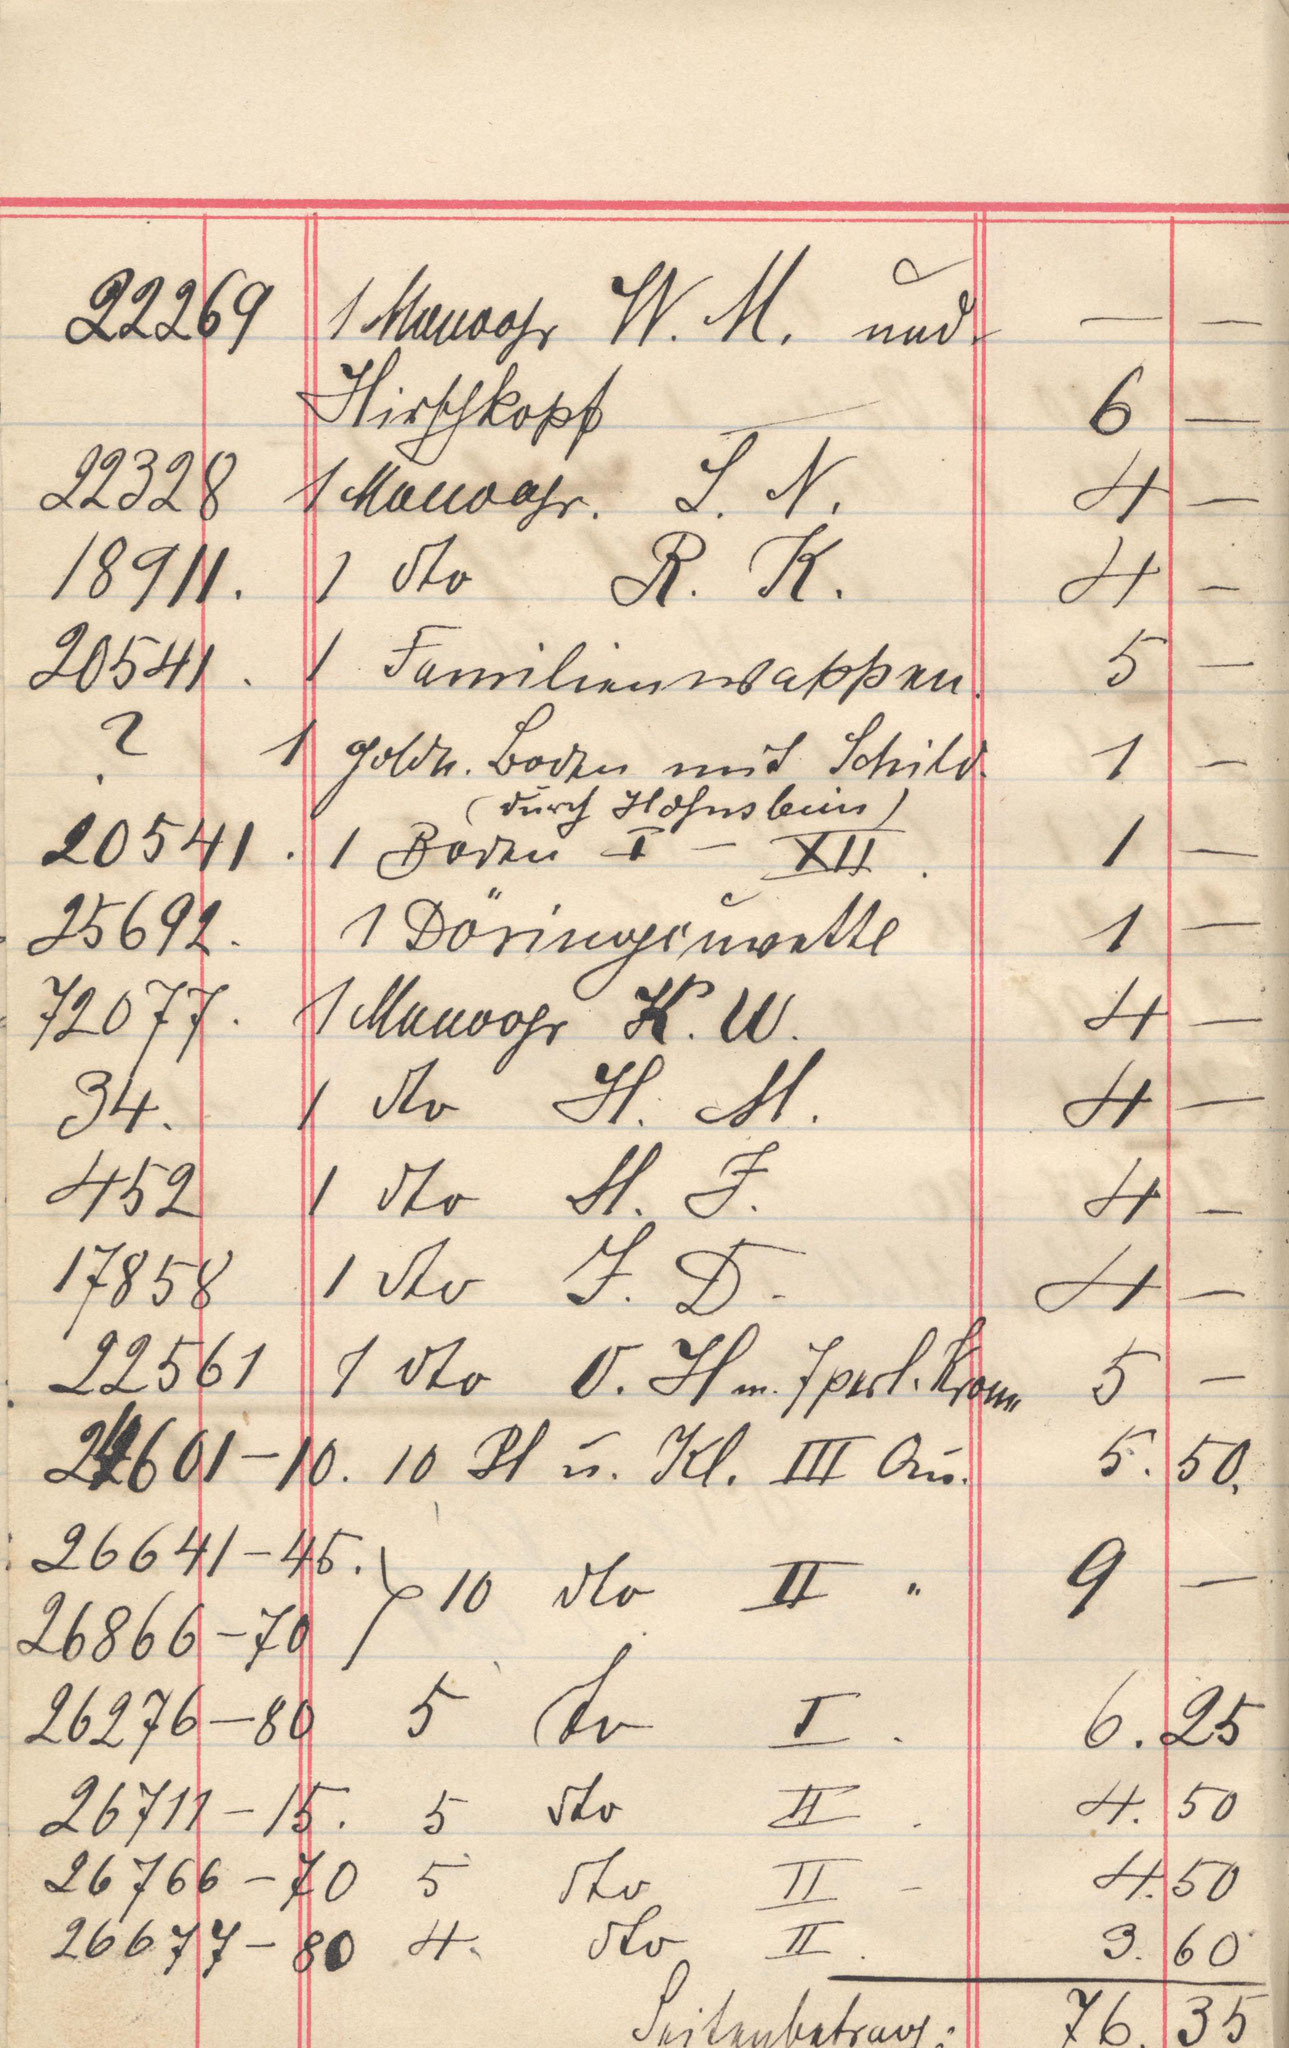 22269 1 Monogr W. M. und — —
Hirschkopf 6 —
22328 1 Monogr. L. N. 4 —
18911. 1 dto R. K. 4 —
20541. 1 Familienwappen. 5 —
? 1 goldn. Boden mit Schild. 1 —
(durch Hohnsbein)
20541. 1 Boden I – XII. 1 —
25692. 1 Döring 1 —
72077. 1 Monogr K. W. 4 —
34. 1 dto H. M. 4 —
452 1 dto M. J. 4 —
17858 1 dto J. D. 4 —
22561 1 dto O. H m. 7 perl. Krone 5 —
601–10. 10 Pl u. Kl. III Qu. 5. 50.
26641–45.
10 dto II " 9 —
26866–70
26276–80 5 dto I. 6. 25
26711–15. 5 dto II. 4. 50
26766–70 5 dto II – 4. 50
26677–80 4. dto II. 3. 60
Seitenbetrag: 76. 35